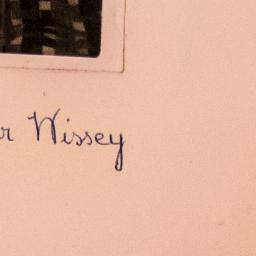 r Wissey